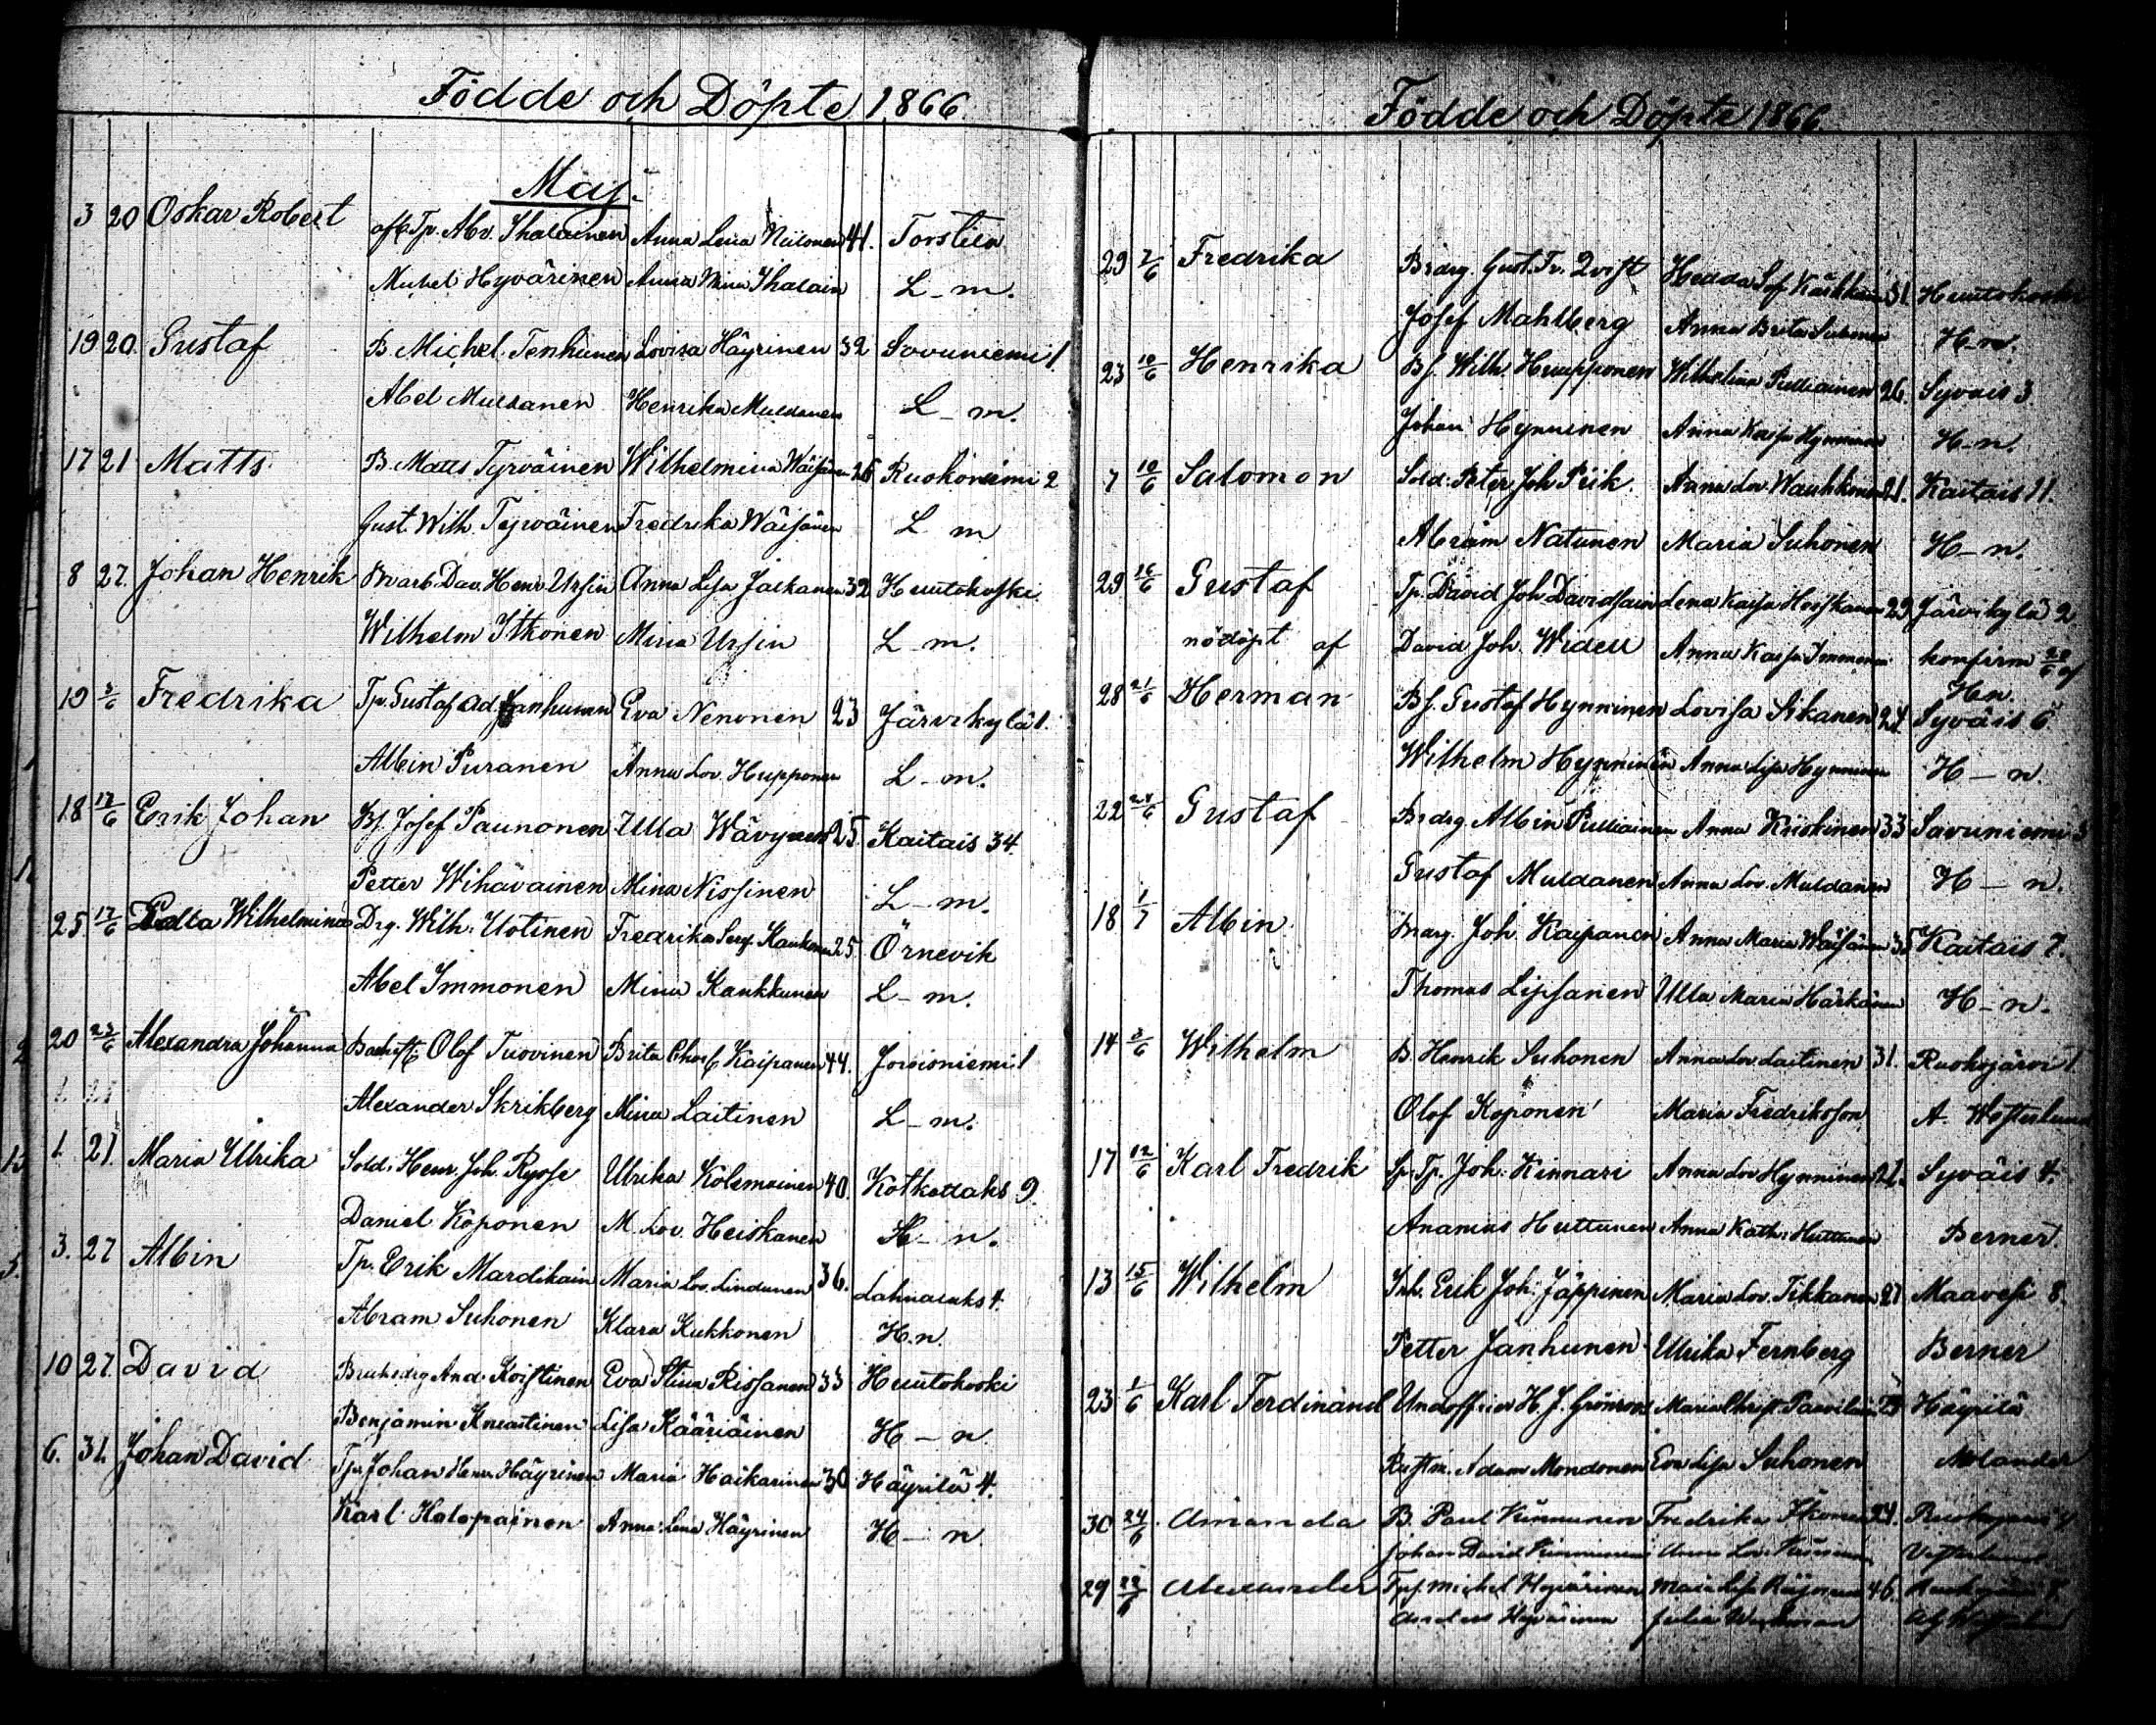 Födde och Döpte 1866
Maj.
3 20 Oskar Robert afsk. Tp. Abr. Ihalainen Anna Lena Niilonen 41. Torstila
Michel Hyvärinen Anna Mina Ihalain L-m.
19 20. Gustaf B. Michel Tenhunen Lovisa Häyrinen 32 Savuniemi 1
Abel Muldanen Henrika Muldanen L-m.
17 21 Matts B. Matts Tyrväinen Wilhelmina Wäisänen 26 Ruokoniemi 2
Gust. Wilh. Tyrväinen Fredrika Wäisänen L m
8 27. Johan Henrik Br. arb. Dav. Henr. Ursin Anna Lisa Jalkanen 32 Huutokoski
Wilhelm Itkonen Mina Ursin L-m.
19 3/6 Fredrika Tp. Gustaf Ad. Janhunen Eva Nenonen 23 Järvikylä 1.
Albin Puranen Anna Lov. Hupponen L-m.
18 17/6 Erik Johan Bs. Josef Paunonen Ulla Wävynen 25. Kaitais 34.
Petter Wihavainen Mina Nissinen L-m.
25 17/6 Edla Wilhelmina Drg. Wilh. Uotinen Fredrika Serf. Kaukonen 25. Örnevik
Abel Immonen Mina Kaukkunen L-m.
20 23/6 Alexandra Johanna Olof Tuovinen Brita Kaipanen 44. Joroisniemi 1
Alexander Skrikberg Mina Laitinen L-m.
1. 21. Maria Ulrika Sold. Henr. Joh. Rysse Ulrika Kolemainen 40. Kotkatlaks 9
Daniel Koponen M. Lov. Heiskanen H-n.
3. 27 Albin Tp. Erik Mardikain Maria Lov. Lindunen 36. Lahnalaks 4.
Abram Suhonen Klara Kukkonen H.n.
10 27. David Bruksdrg And. Koistinen Eva Stina Rissanen 33 Huutokoski
Benjamin Knuutinen Lisa Kääriäinen H-n.
6. 31. Johan David Tp. Johan Henr. Häyrinen Maria Haikarinen 30 Häyrilä 4.
Karl Halopainen Anna Lena Häyrinen H-n.
Födde och Döpte 1866.
29 2/6 Fredrika Br drg. Gust. Fr. Qvist Hedda Sof. Kärkkäin 31. Huutokoski
Josef Mahlberg Anna Brita Suhonen H-n.
23 10/6 Henrika Bs. Wilh. Hupponen Wilhelmina Pulliainen 26. Syvais 3.
Johan Hynninen Anna Kaisa Hynninen H-n.
7 10/6 Salomon Sold. Peter Joh. Piik. Anna Lov. Wauhkonen 21. Kaitais 11.
Abram Natunen Maria Suhonen H-n.
29 16/6 Gustaf Tp. David Joh. Davidsain Lena Kaisa 29 Järvikylä 2
nödöpt af David Joh. Widell Anna Kaisa Immonen konfirm 20/6 af
H.n.
28 21/6 Herman Bs. Gustaf Hynninen Lovisa Sikanen 24. Syväis 6.
Wilhelm Hynninen Anna Lisa Hynninen H-n.
22 24/6 Gustaf Br drg Albin Pulliainen Anna Kiiskinen 33 Savuniemi 3
Gustaf Muldanen Anna Lov. Muldanen H-n.
18 1/7 Albin Br drg. Joh. Kaipanen Anna Maria Wäisänen 35 Kaitais 7.
Thomas Lipsanen Ulla Maria Härkönen H-n.
14 3/6 Wilhelm B. Henrik Suhonen Anna Lov. Laitinen 31. Ruokojärvi 1
Olof Koponen Maria Fredrikson A. Westerlund
17 12/6 Karl Fredrik Sp. Tp. Joh. Kinnari Anna Lov Hynninen 21. Syväis 4.
Ananias Huttunen Anna Kath. Huttunen Berner.
13 15/6 Wilhelm Inh. Erik Joh. Jäppinen Maria Lov. Tikkanen 27 Maavesi 8.
Petter Janhunen Ulrika Fernberg Berner
23 1/6 Karl Ferdinand Undoffic H. J. Grönroos Maria Christ. Paavilain Häyrilä
Rustm. Adam Mondonen Eva Lisa Suhonen Molander
30 24/6 Amanda B. Paul Kinnunen Fredrika Itkonen 24. Ruokojärvi
Johan David Kinnunen Anna Lov. Kinnunen
29 22/6 Alexander Michel Hyvärinen 46.
Anders Hyvärinen Julia